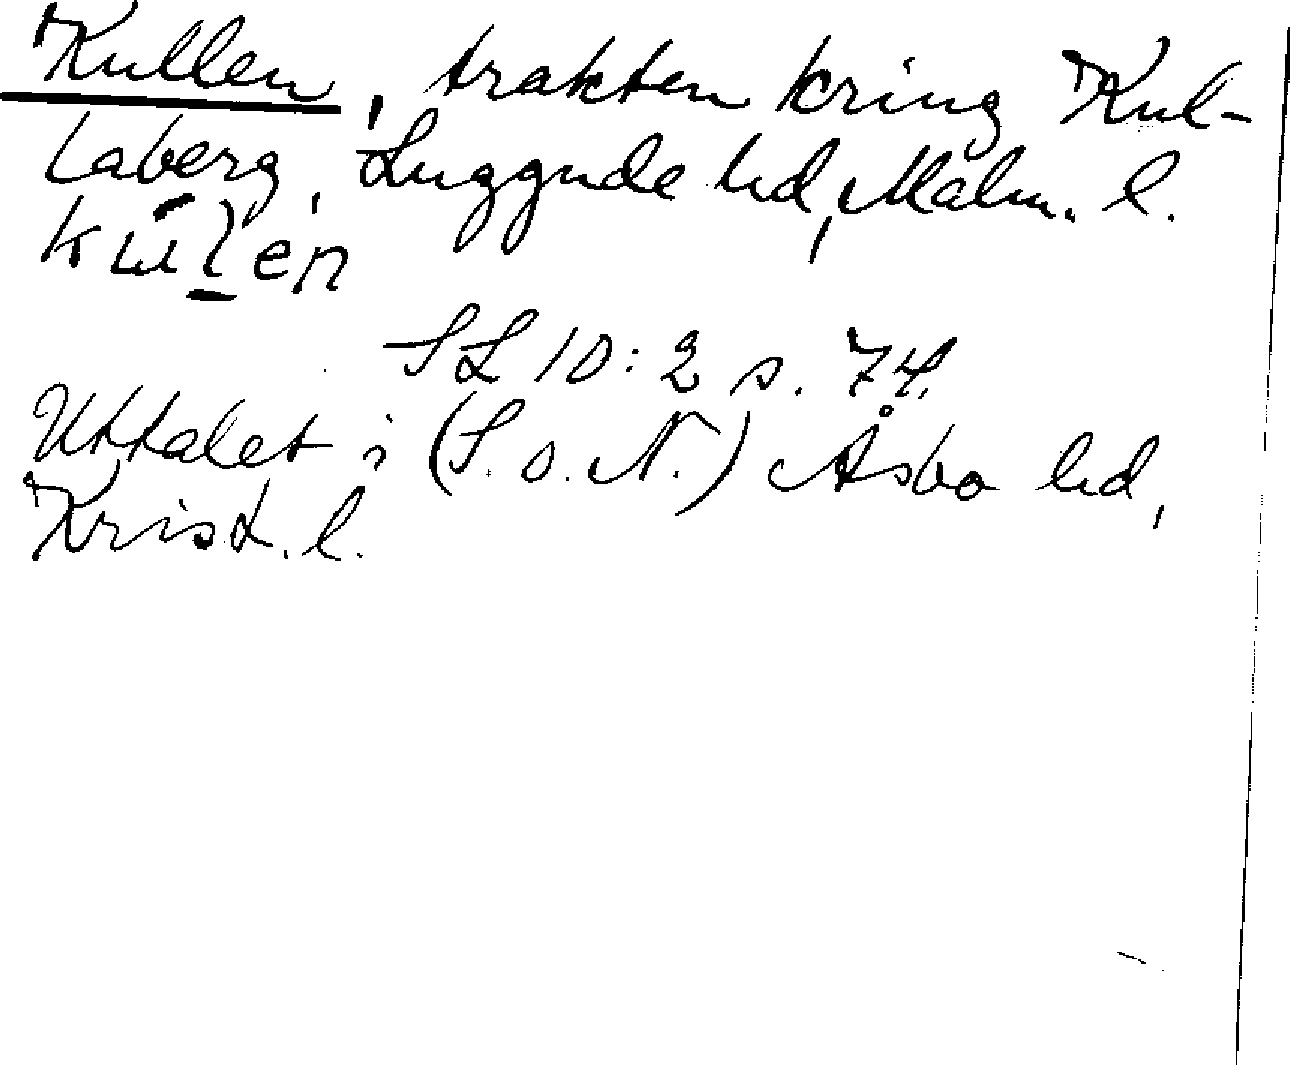 Kullen, trakten kring Kul-
laberg, Luggude hd, Malm. l.
SL 10:2 s. 74.
Uttalet i (S. o. N.) Åsbo hd,
Krist. l.